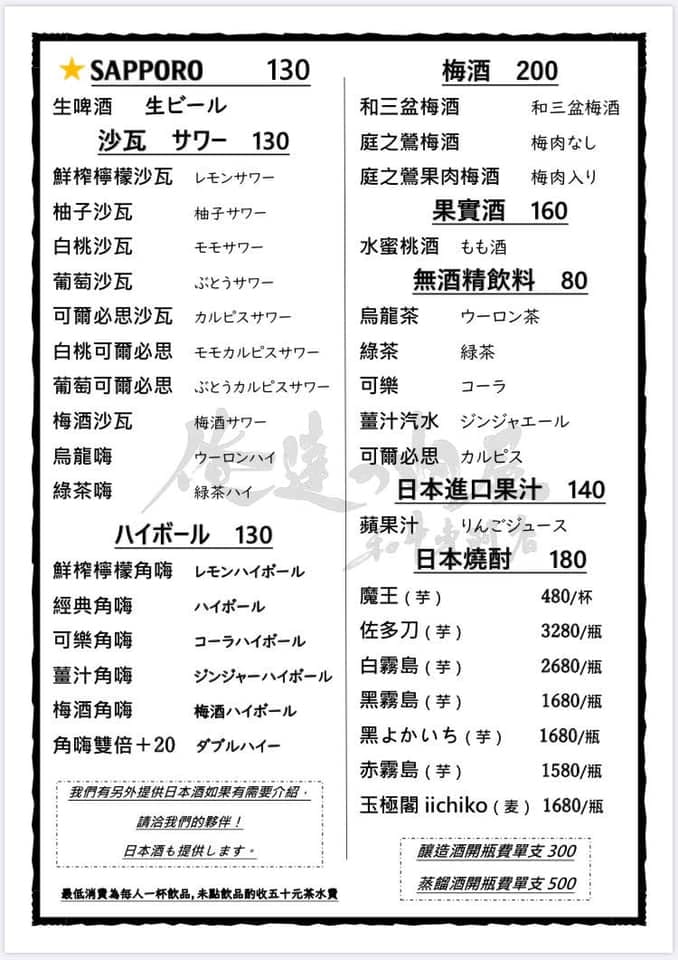 SAPPORO 130
生啤酒 生ビール
沙瓦 サワー 130
鮮榨檸檬沙瓦 レモンサワー
柚子沙瓦 柚子サワー
白桃沙瓦 モモサワー
葡萄沙瓦 ぶとうサワー
可爾必思沙瓦 カルピスサワー
白桃可爾必思 モモカルピスサワー
葡萄可爾必思 ぶとうカルピスサワー
梅酒沙瓦 梅酒サワー
烏龍嗨 ウーロンハイ
綠茶嗨 緑茶ハイ
ハイボール 130
鮮榨檸檬角嗨 レモンハイボール
經典角嗨 ハイボール
可樂角嗨 コーラハイボール
薑汁角嗨 ジンジャーハイボール
梅酒角嗨 梅酒ハイボール
角嗨雙倍＋20 ダブルハイー
我們有另外提供日本酒如果有需要介紹，
請洽我們的夥伴！
日本酒も提供します。
最低消費為每人一杯飲品,未點飲品酌收五十元茶水費
梅酒 200
和三盆梅酒 和三盆梅酒
庭之鶯梅酒 梅肉なし
庭之鶯果肉梅酒 梅肉入り
果實酒 160
水蜜桃酒 もも酒
無酒精飲料 80
烏龍茶 ウーロン茶
綠茶 緑茶
可樂 コーラ
薑汁汽水 ジンジャエール
可爾必思 カルピス
日本進口果汁 140
蘋果汁 りんごジュース
日本燒酎 180
魔王 ( 芋 ) 480/杯
佐多刀 ( 芋 ) 3280/瓶
白霧島 ( 芋 ) 2680/瓶
黑霧島 ( 芋 ) 1680/瓶
黑よかいち ( 芋 ) 1680/瓶
赤霧島 ( 芋 ) 1580/瓶
玉極閣 iichiko ( 麦 ) 1680/瓶
釀造酒開瓶費單支 300
蒸餾酒開瓶費單支 500